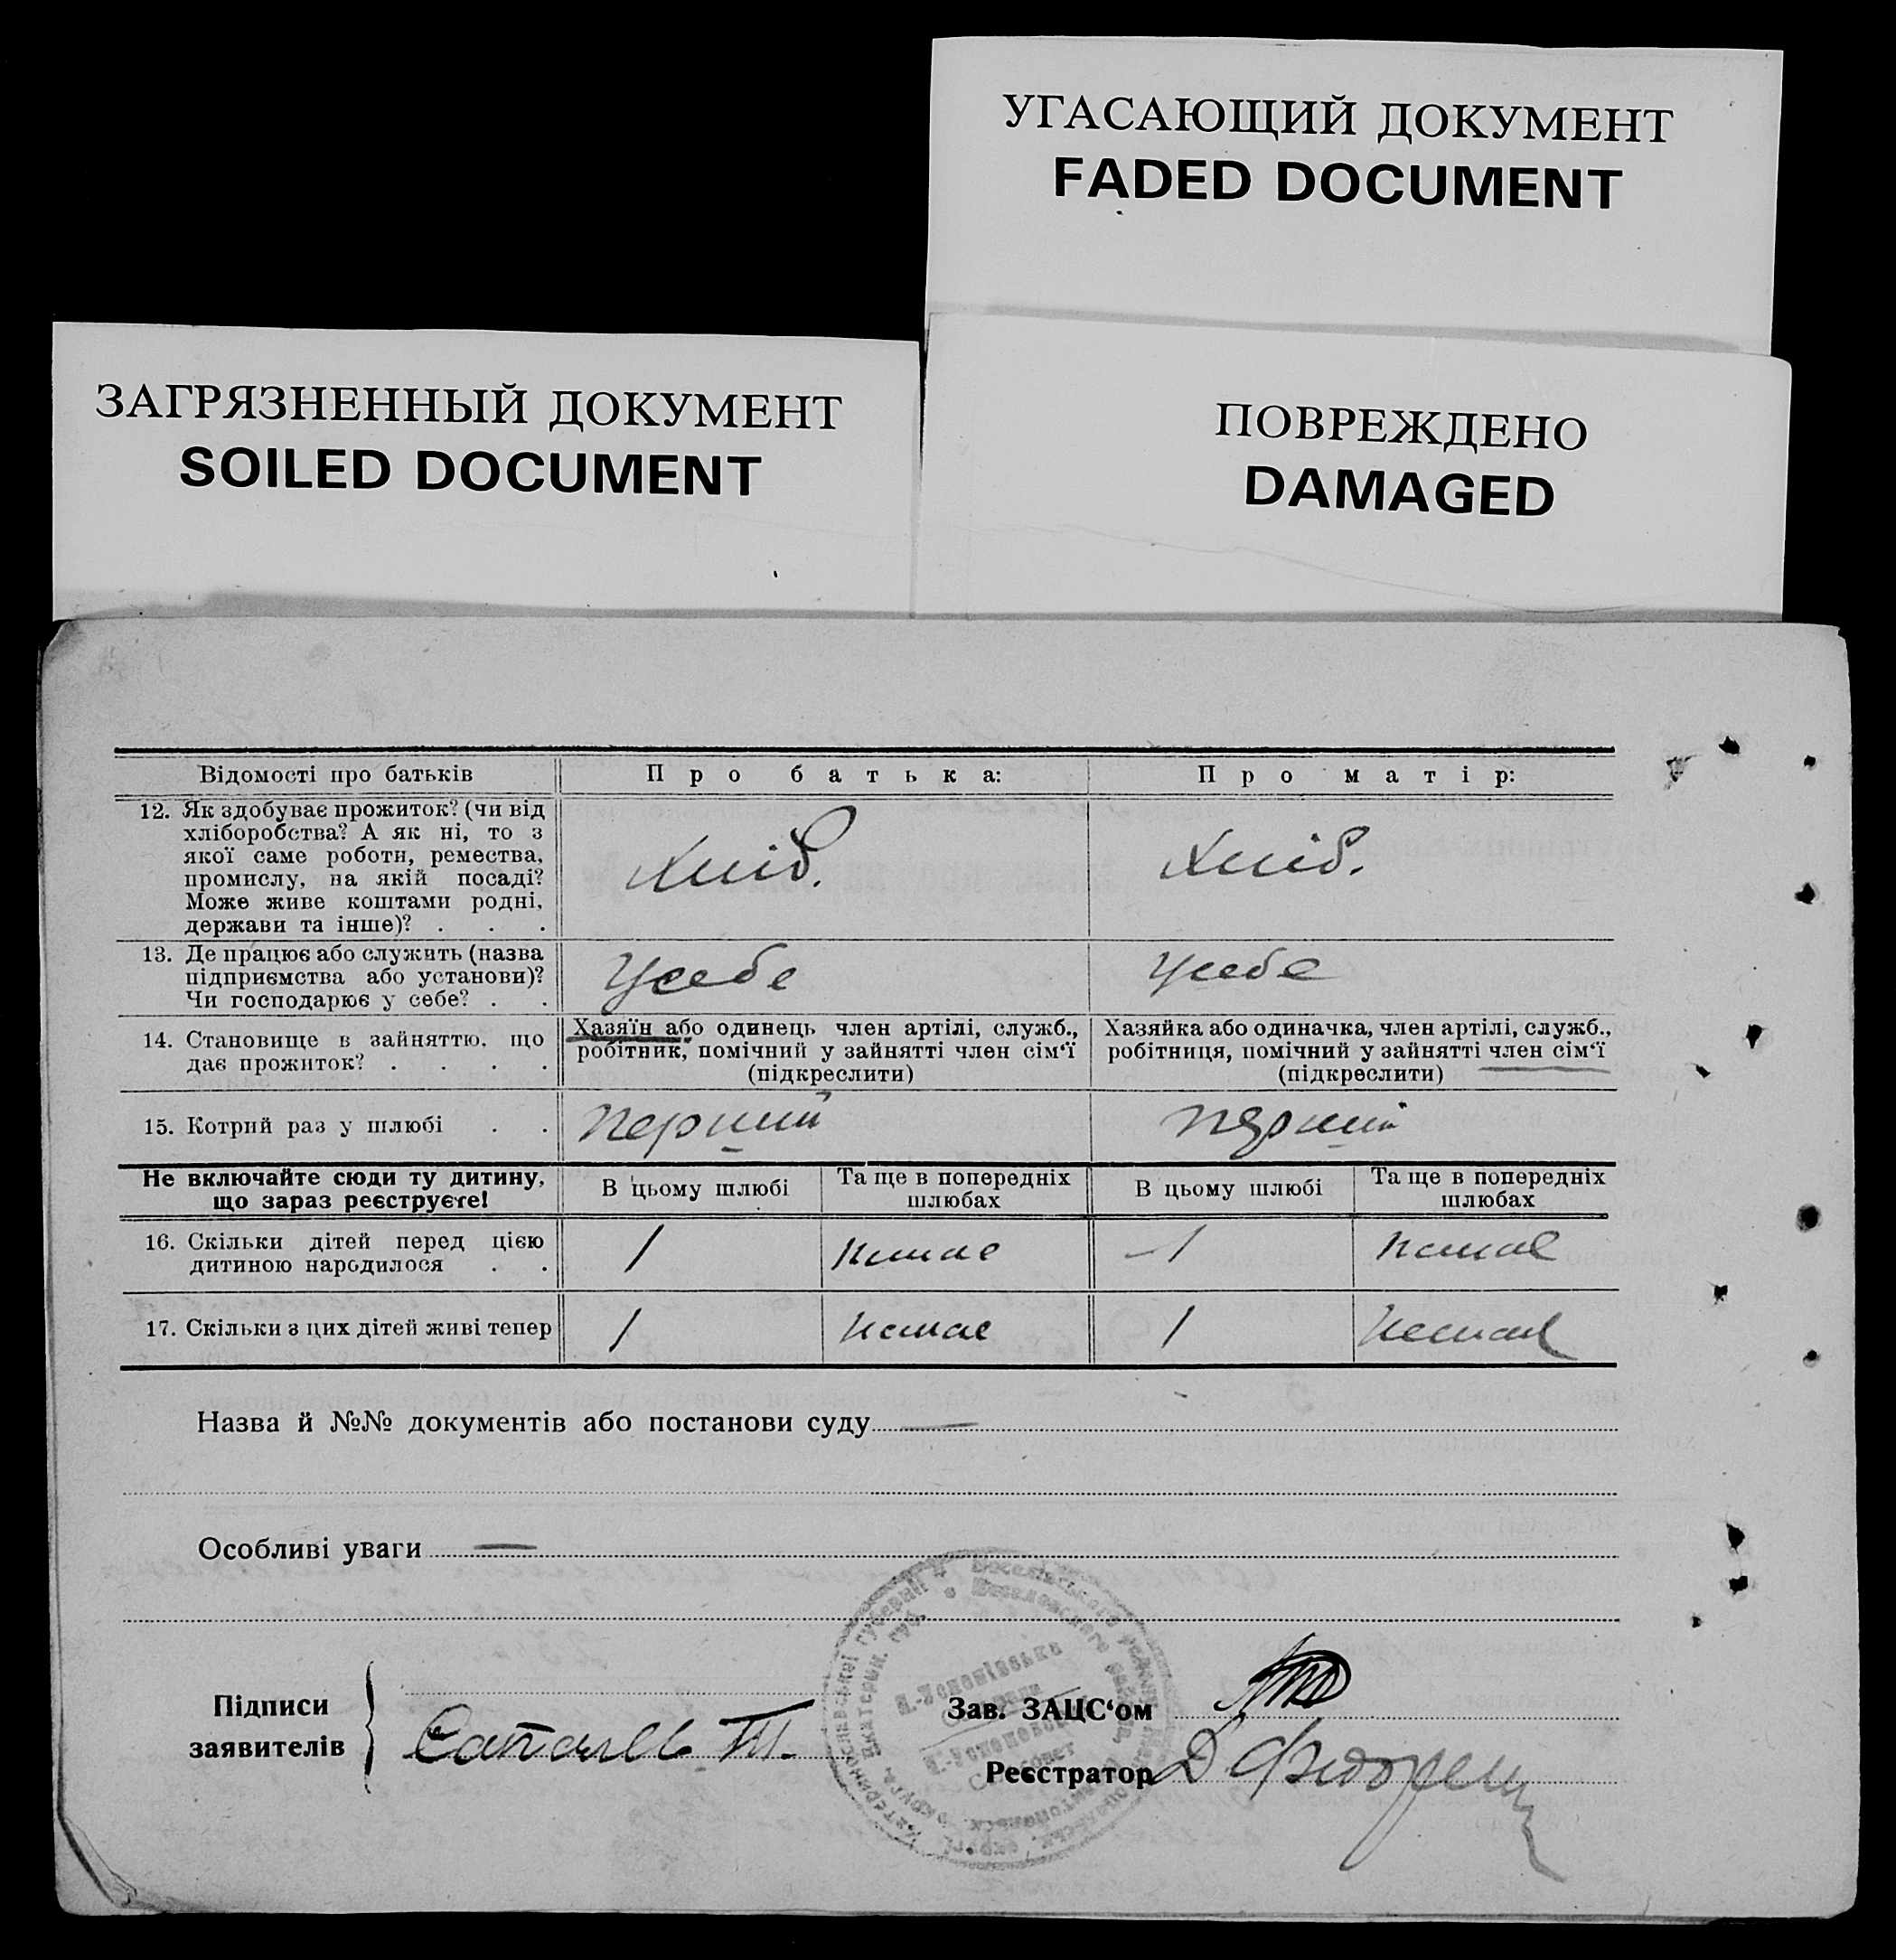 УГАСАЮЩИЙ ДОКУМЕНТ
FADED DOCUMENT
ЗАГРЯЗНЕННЫЙ ДОКУМЕНТ
SOILED DOCUMENT
ПОВРЕЖДЕНО
DAMAGED
Відомості про батьків
Про батька:
Про матір:
12. Як здобуває прожиток? (чи від
хліборобства? А як ні, то з
якої саме роботи, ремества,
промислу, на якій посаді?
Може живе коштами родні,
держави та інше)? . . .
Хліб.
Хліб.
13. Де працює або служить (назва
підприємства або установи)?
Чи господарює у себе? . .
У себе
У себе
14. Становище в зайняттю, що
дає прожиток? . . . .
Хазяїн або одинець член артілі, служб.,
робітник, помічний у зайнятті член сім‘ї
(підкреслити)
Хазяйка або одиначка, член артілі, служб.,
робітниця, помічний у зайнятті член сім‘ї
(підкреслити)
15. Котрий раз у шлюбі . .
Перший
Перший
Не включайте сюди ту дитину,
що зараз реєструєте!
В цьому шлюбі
Та ще в попередніх
шлюбах
В цьому шлюбі
Та ще в попередніх
шлюбах
16. Скільки дітей перед цією
дитиною народилося . .
1
Немає
1
Немає
17. Скільки з цих дітей живі тепер
1
Немає
1
Немає
Назва й №№ документів або постанови суду —
Особливі уваги —
Підписи
заявителів
Зав. ЗАЦС‘ом
Реєстратор